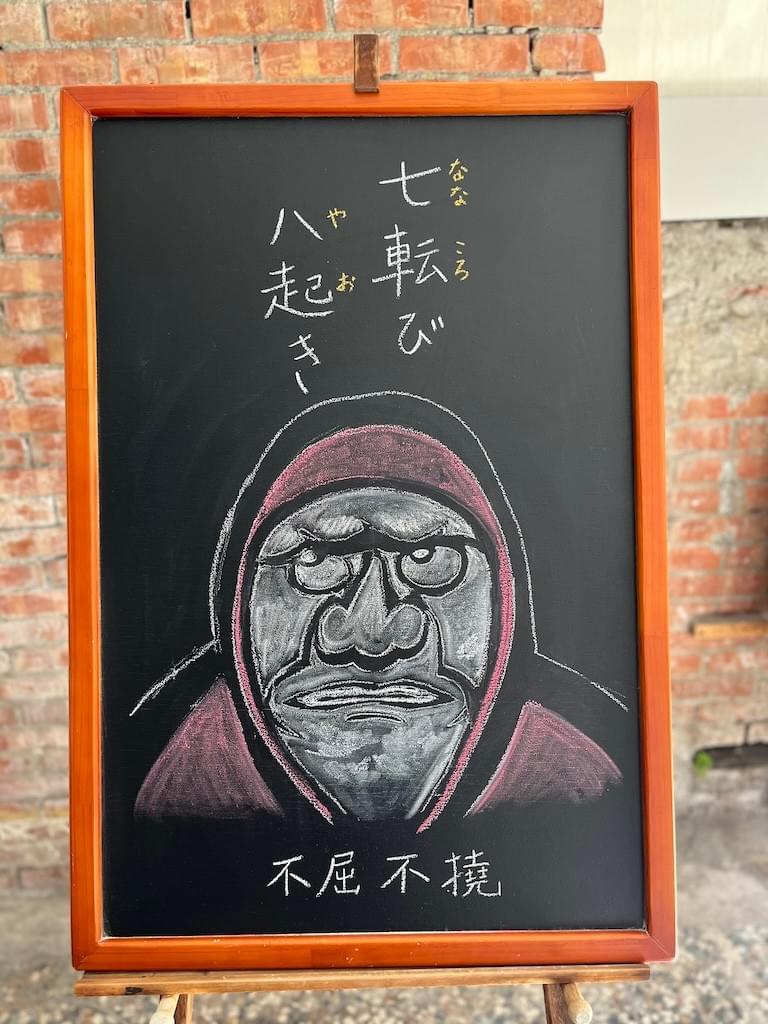 七転び
なな ころ
八起き
や お
不屈不撓